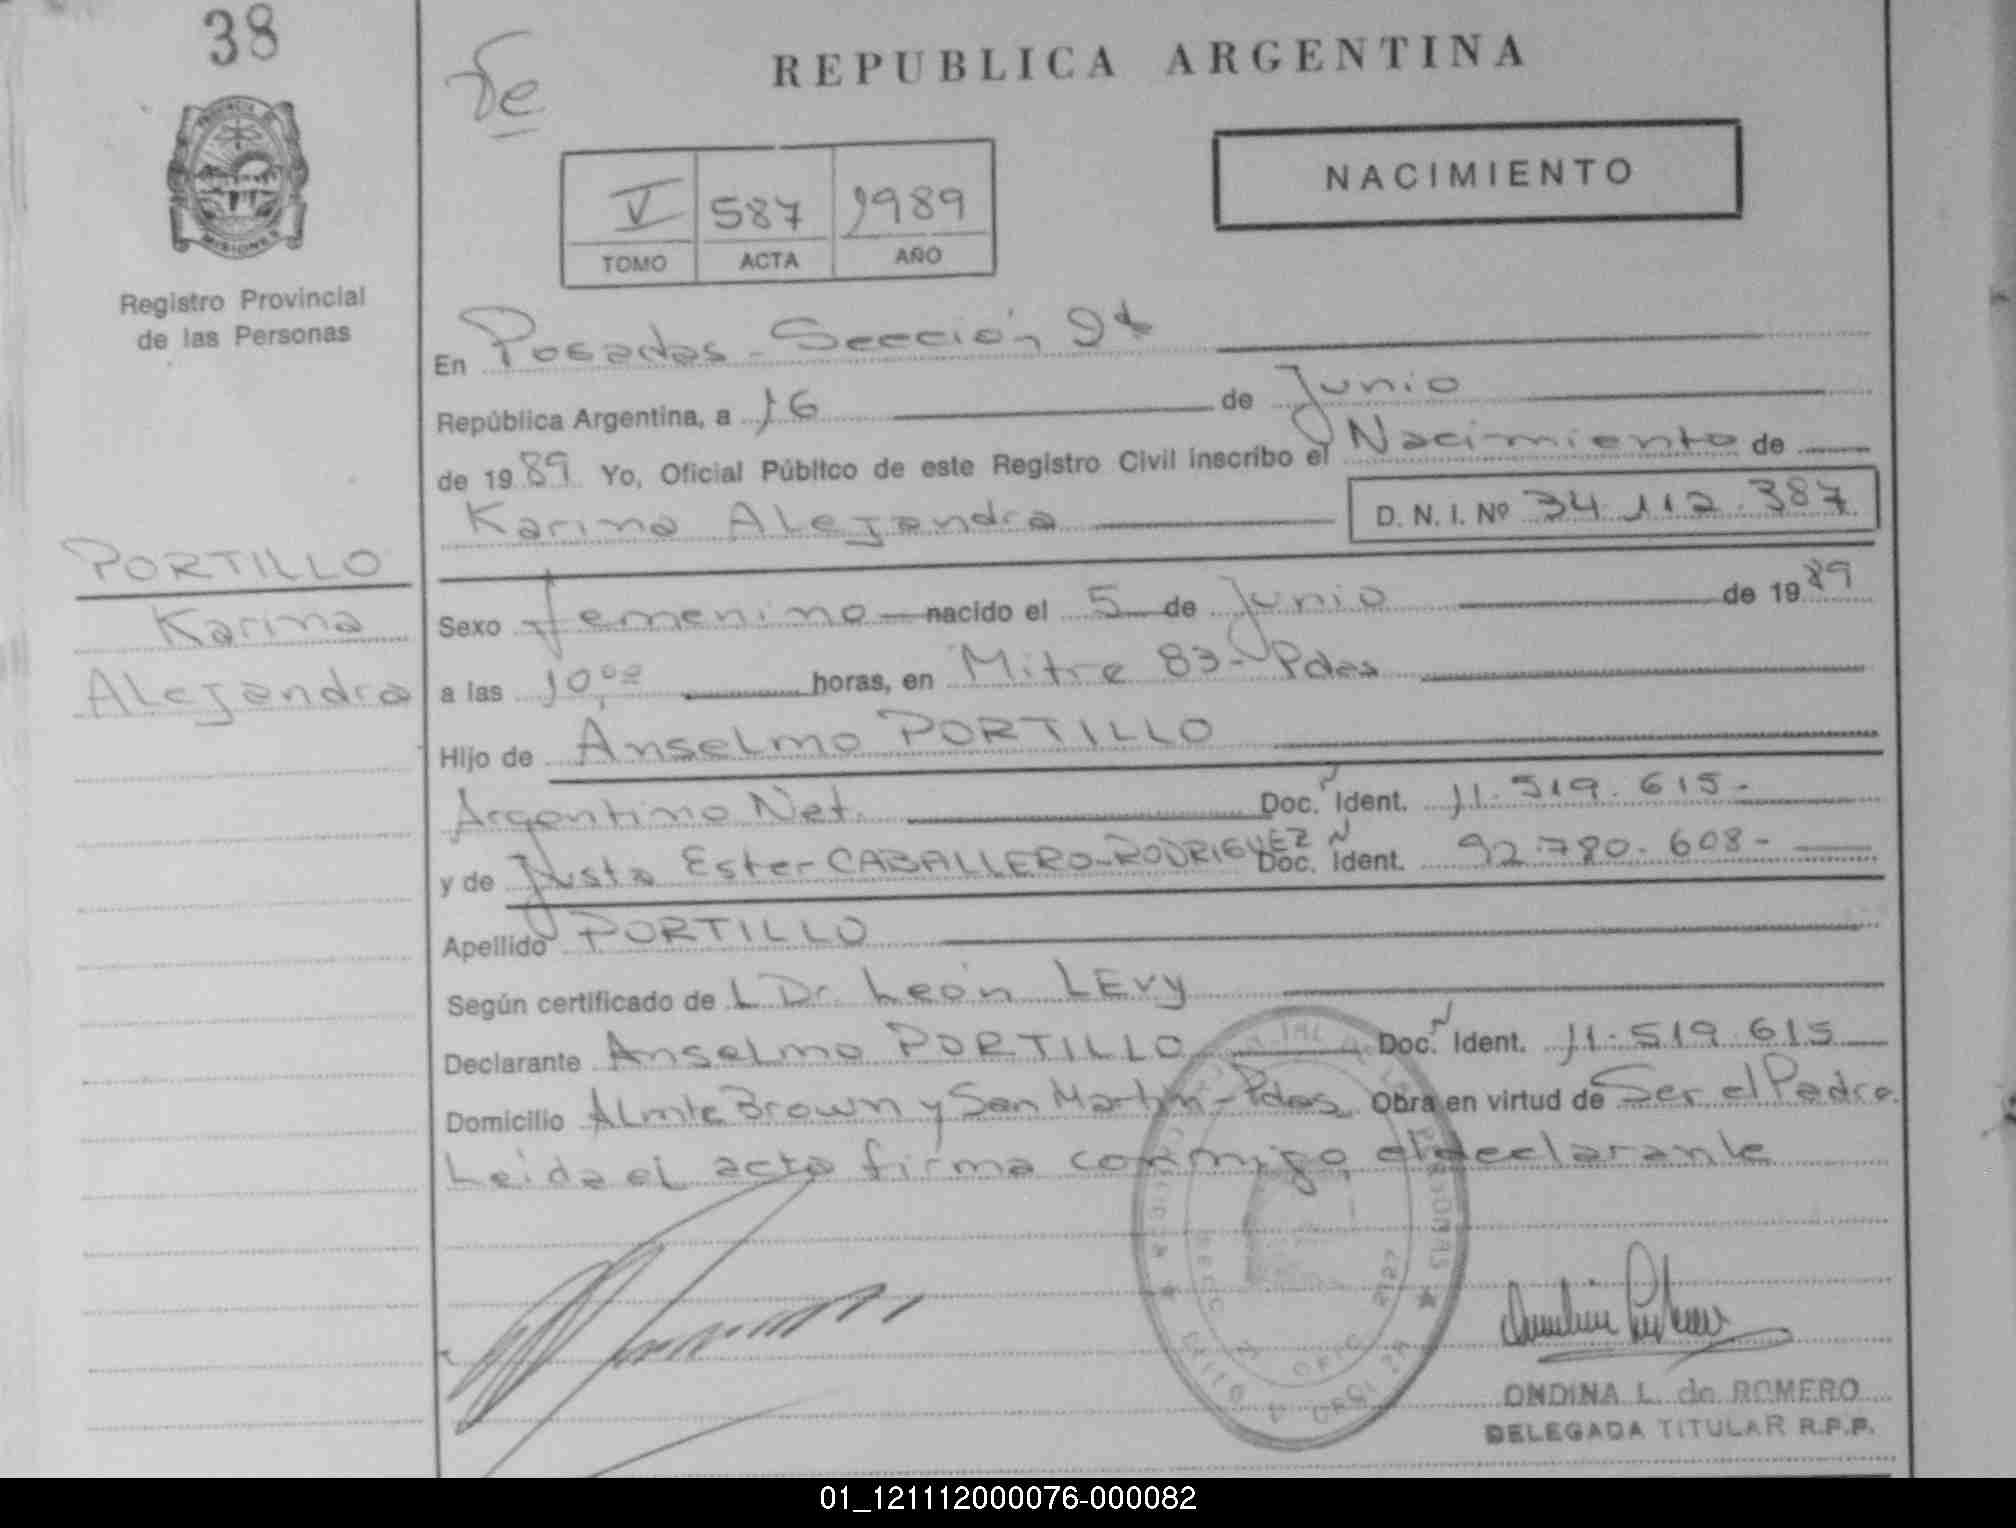 38
Fe
REPUBLICA ARGENTINA
NACIMIENTO
V 587 1989
TOMO ACTA AÑO
PROVINCIA
MISIONES
Registro Provincial
de las Personas
En Posadas - Sección 9
República Argentina, a 16 de Junio
de 1989 Yo, Oficial Público de este Registro Civil inscribo el Nacimiento de
Karina Alejandra D. N. I. Nº 34.112.387
PORTILLO
Karina
Alejandra
Sexo femenino nacido el 5 de Junio de 1989
a las 10,00 horas, en Mitre 83 - Pdas
Hijo de Anselmo PORTILLO
Argentino Nat. Doc. Ident. 11.519.615-
y de Justa Ester CABALLERO-RODRIGUEZ Doc. Ident. 92.780.608-
Apellido PORTILLO
Según certificado del Dr. León LEvy
Declarante Anselmo PORTILLO Doc. Ident. 11.519.615
Domicilio ALmte Brown y San Martín - Pdas Obra en virtud de Ser el Padre
Leida el acta firma conmigo el declarante
ONDINA L. de ROMERO
DELEGADA TITULAR R.P.P.
01_121112000076-000082